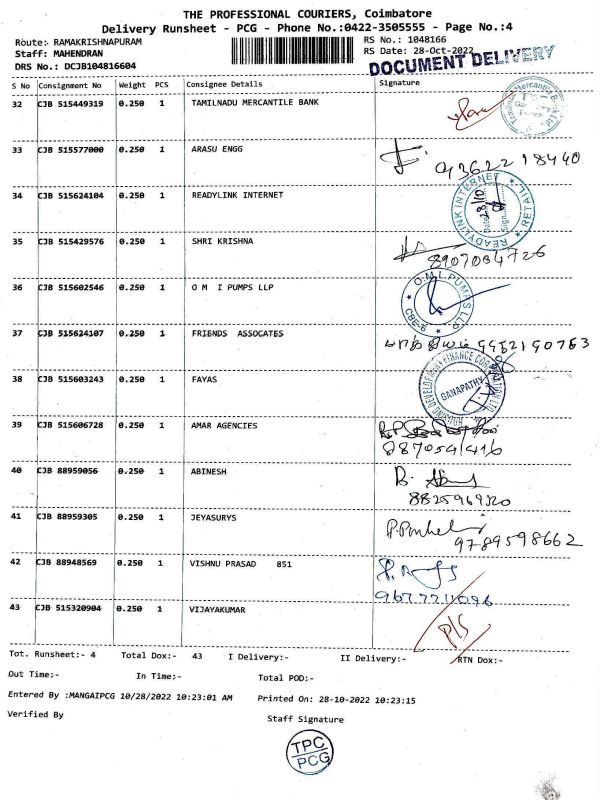 THE PROFESSIONAL COURIERS, Coimbatore
Delivery Runsheet - PCG - Phone No.:0422-3505555 - Page No.:4
Route:- RAMAKRISHNAPURAM RS No.: 1048166
Staff: MAHENDRAN RS Date: 28-Oct-2022
DRS No.: DCJB104816604 DOCUMENT DELIVERY
S No Consignment No Weight PCS Consignee Details Signature
32 CJB 515449319 0.250 1 TAMILNADU MERCANTILE BANK
33 CJB 515577000 0.250 1 ARASU ENGG
9362218440
34 CJB 515624104 0.250 1 READYLINK INTERNET
READYLINK INTERNET ★ RETAIL ★
35 CJB 515429576 0.250 1 SHRI KRISHNA
8907084726
36 CJB 515602546 0.250 1 O M I PUMPS LLP
O.M.I. PUMPS LLP ★ CBE-6 ★
37 CJB 515624107 0.250 1 FRIENDS ASSOCATES
9952190763
38 CJB 515603243 0.250 1 FAYAS
HOUSING DEVELOPMENT FINANCE CORPORATION LTD.
GANAPATHY
39 CJB 515606728 0.250 1 AMAR AGENCIES
8870541416
40 CJB 88959056 0.250 1 ABINESH
8825969320
41 CJB 88959305 0.250 1 JEYASURYS
9789598662
42 CJB 88948569 0.250 1 VISHNU PRASAD 851
9677211096
43 CJB 515320904 0.250 1 VIJAYAKUMAR
P/S
Tot. Runsheet:- 4 Total Dox:- 43 I Delivery:- II Delivery:- RTN Dox:-
Out Time:- In Time:- Total POD:-
Entered By :MANGAIPCG 10/28/2022 10:23:01 AM Printed On: 28-10-2022 10:23:15
Verified By Staff Signature
TPC
PCG